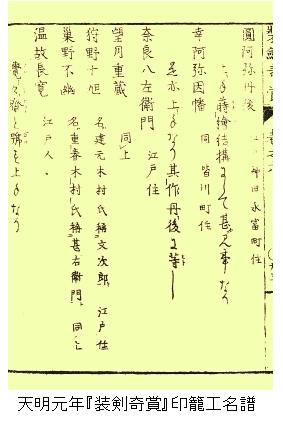 装剣奇賞
圓阿弥丹後 神田永富町住
上手蒔絵結構にして甚見事なり
幸阿弥因幡 同 皆川町住
是亦上手なり其作丹後に等し
奈良八左衛門 江戸住
望月重蔵 同上
狩野十旭 名建元木村氏稱文次郎 江戸住
巣野不幽 名重春木村氏稱甚右衛門 同上
温故長寛 江戸人
天明元年『装剣奇賞』印籠工名譜